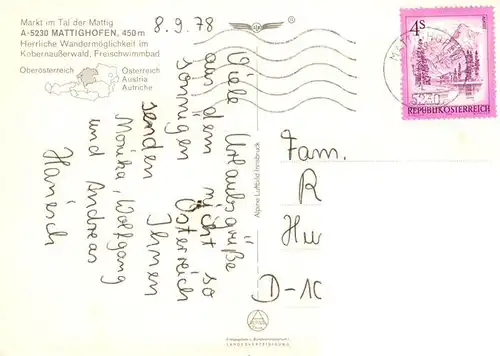 Markt im Tal der Mattig
A-5230 MATTIGHOFEN, 450 m
Herrliche Wandermöglichkeit im
Kobernaußerwald, Freischwimmbad
Oberösterreich
Österreich
Austria
Autriche
8.9.78
Viele Urlaubsgrüße
aus dem nicht so
sonnigen Österreich
senden Ihnen
Monika, Wolfgang
und Andreas
Hanisch
Alpine Luftbild Innsbruck
4S
REPUBLIK ÖSTERREICH
5230
Fam.
R
Hu
D-10